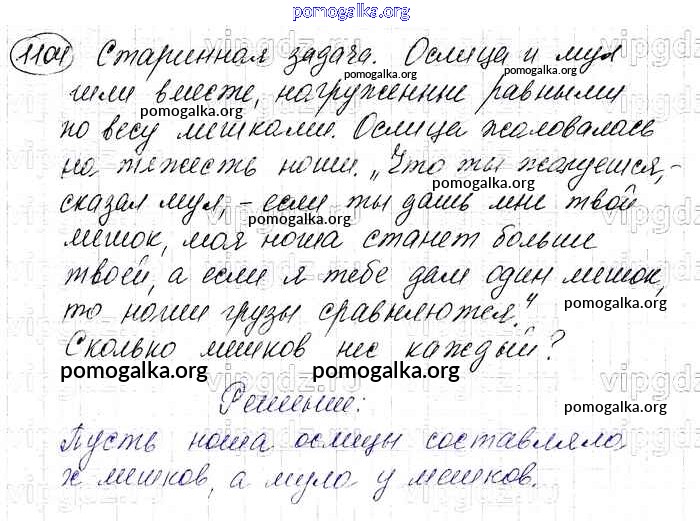 pomogalka.org
1104 Старинная задача. Ослица и мул
pomogalka.org
шли вместе, нагруженные равными
pomogalka.org
по весу мешками. Ослица жаловалась
на тяжесть ноши. „Что ты жалуешься,-
pomogalka.org
сказал мул, - если ты дашь мне твой
pomogalka.org
мешок, моя ноша станет больше
твоей, а если я тебе дам один мешок,
pomogalka.org
то наши грузы сравняются."
Сколько мешков нес каждый?
pomogalka.org pomogalka.org
Решение:
pomogalka.org
Пусть ноша ослицы составляла
x мешков, а мула y мешков.
pomogalka.org